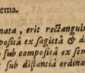 ema.
nata, eric rectangulu
posita ex sagitta &
sub composita ex sem
sub distantia ordina